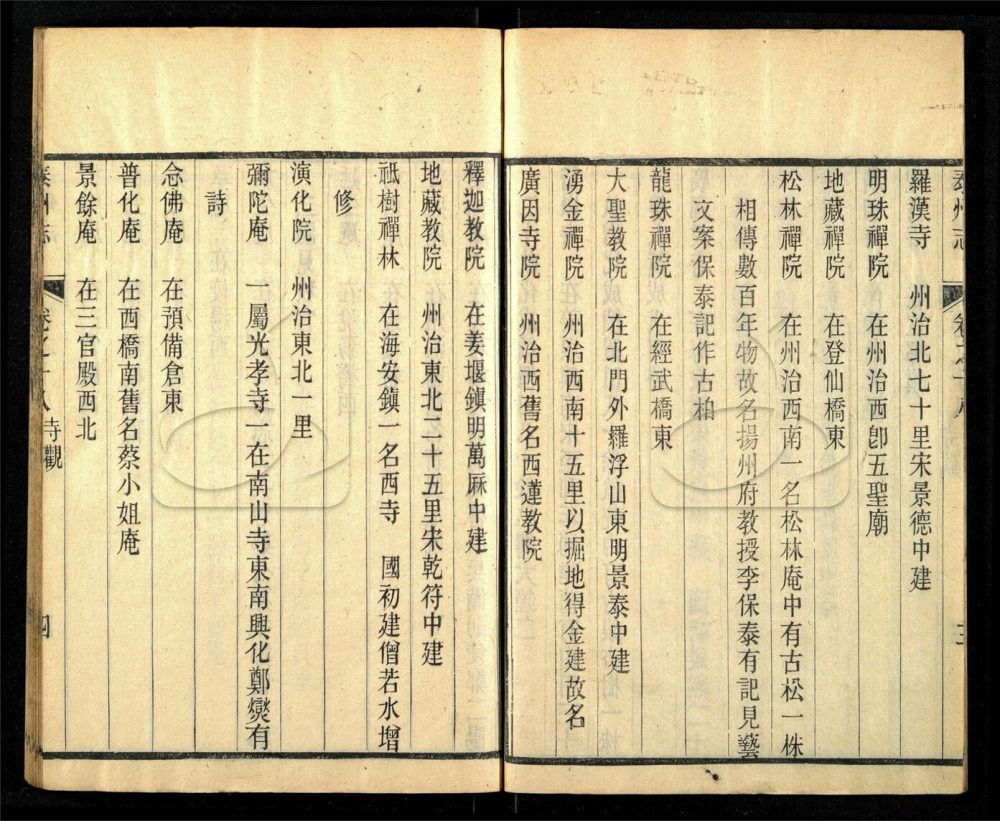 泰州志　卷之十八　三
羅漢寺　州治北七十里宋景德中建
明珠禪院　在州治西卽五聖廟
地藏禪院　在登仙橋東
松林禪院　在州治西南一名松林庵中有古松一株
相傳數百年物故名揚州府教授李保泰有記見藝
文案保泰記作古柏
龍珠禪院　在經武橋東
大聖教院　在北門外羅浮山東明景泰中建
湧金禪院　州治西南十五里以掘地得金建故名
廣因寺院　州治西舊名西蓮教院
釋迦教院　在姜堰鎮明萬厤中建
地藏教院　在州治東北二十五里宋乾符中建
祇樹禪林　在海安鎮一名西寺　國初建僧若水增
修
演化院　州治東北一里
彌陀庵　一屬光孝寺一在南山寺東南興化鄭爕有
詩
念佛庵　在預備倉東
普化庵　在西橋南舊名蔡小姐庵
景餘庵　在三官殿西北
泰州志　卷之十八　寺觀　四